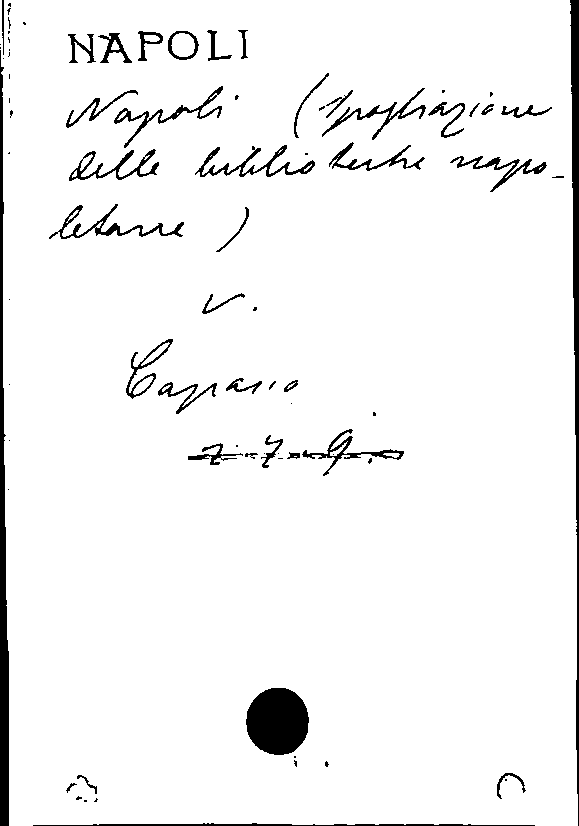 NAPOLI
Napoli (Spogliazione
delle biblioteche napo-
letane)
v.
Capasso
z. 7. 9.